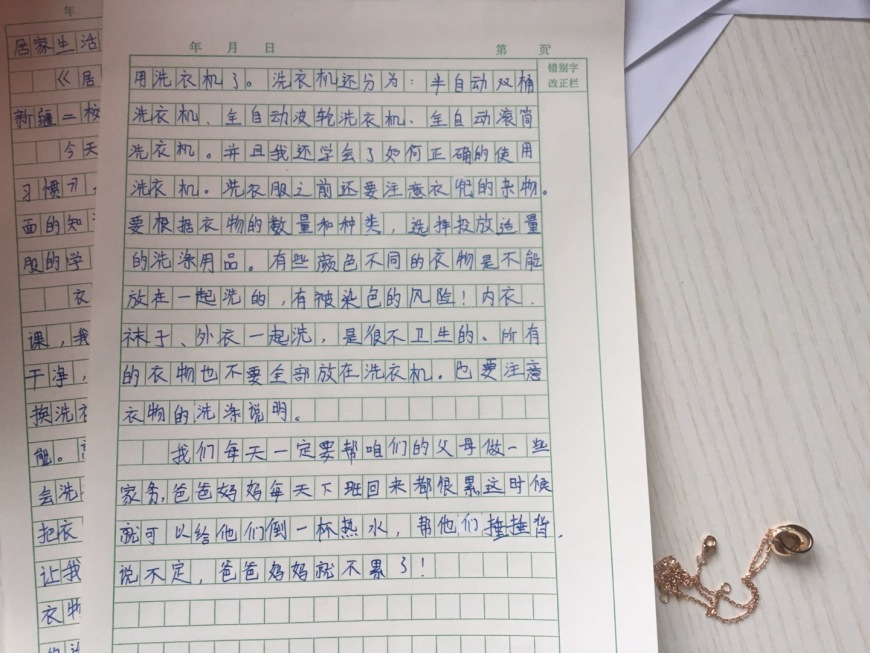 年
居家生活
《居
新疆二校
今天
习惯习
面的知
服的学
衣
课，我
干净，
换洗衣
能。
会洗
把衣
让我
衣物
年 月 日 第 页
错别字
改正栏
用洗衣机了。洗衣机还分为：半自动双桶
洗衣机、全自动波轮洗衣机、全自动滚筒
洗衣机。并且我还学会了如何正确的使用
洗衣机。洗衣服之前还要注意衣兜的杂物。
要根据衣物的数量和种类，选择投放适量
的洗涤用品。有些颜色不同的衣物是不能
放在一起洗的，有被染色的风险！内衣、
袜子、外衣一起洗，是很不卫生的。所有
的衣物也不要全部放在洗衣机。也要注意
衣物的洗涤说明。
我们每天一定要帮咱们的父母做一些
家务，爸爸妈妈每天下班回来都很累这时候
就可以给他们倒一杯热水，帮他们捶捶背，
说不定，爸爸妈妈就不累了！